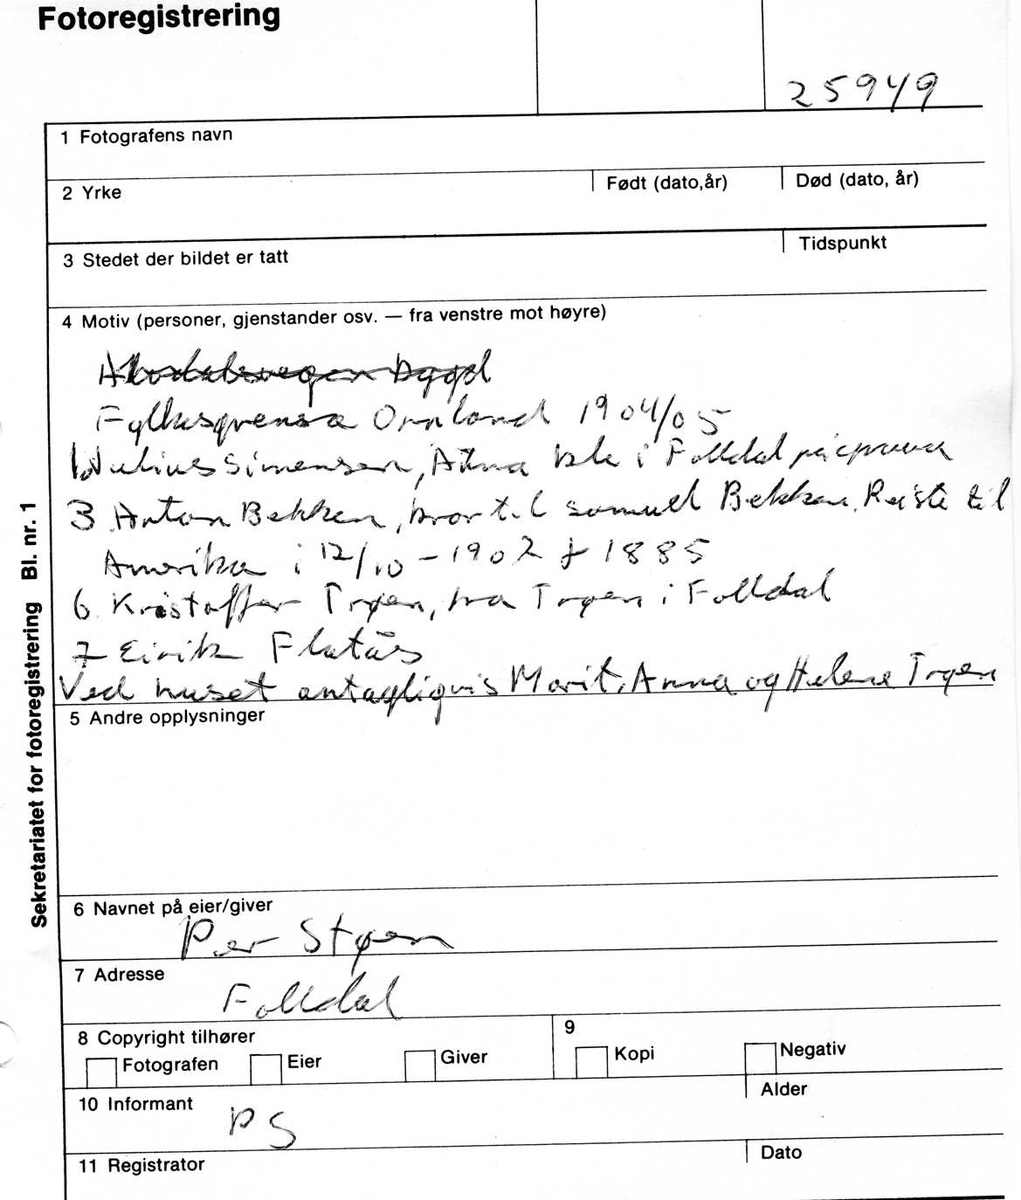 Fotoregistrering
25949
1 Fotografens navn
2 Yrke Født (dato,år) Død (dato, år)
3 Stedet der bildet er tatt Tidspunkt
4 Motiv (personer, gjenstander osv. — fra venstre mot høyre)
bygd
Fylkesgrensa 1904/05
Julius Simensen, Atna i Folldal
3 Anton Bekken, bror til Samuel Bekken, Reiste til
Amerika i 12/10 - 1902 f 1885
6. Kristoffer Trøen, fra Trøen i Folldal
7 Eirik Flatås
Ved huset antagligvis Marit, Anna og Helene Trøen
5 Andre opplysninger
6 Navnet på eier/giver
Per Støen
7 Adresse
Folldal
8 Copyright tilhører 9
Fotografen Eier Giver Kopi Negativ
Alder
10 Informant
PS
11 Registrator Dato
Sekretariatet for fotoregistrering Bl. nr. 1